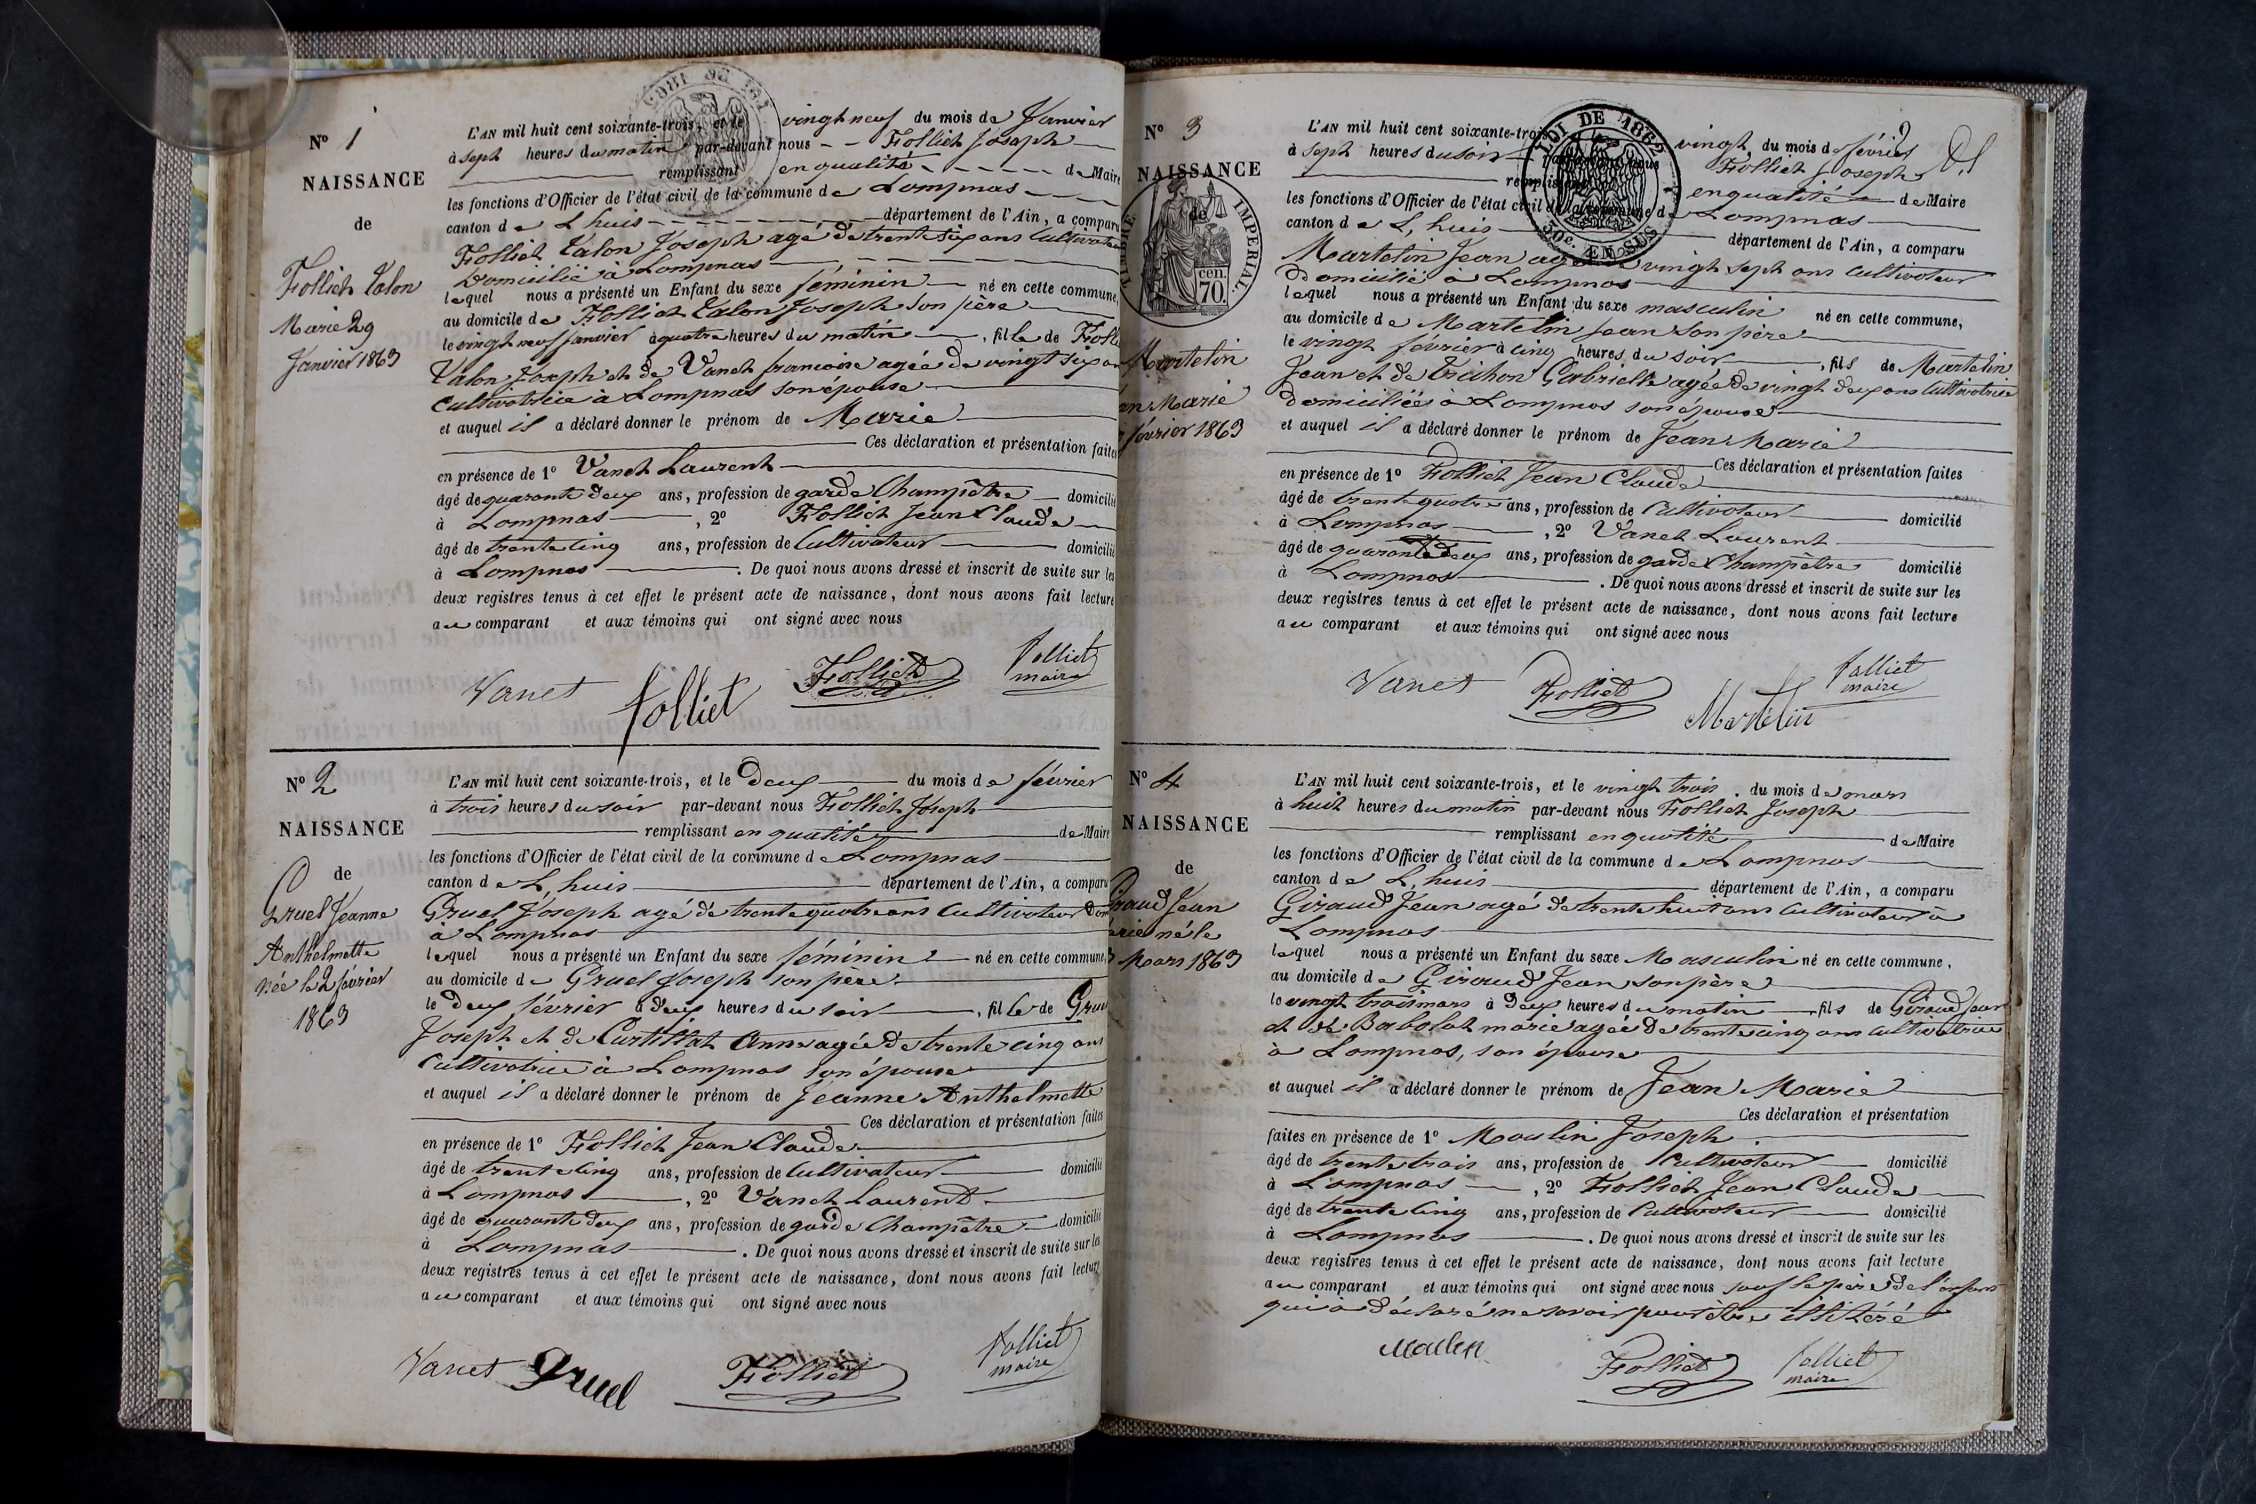 N° 1
NAISSANCE
de
Folliet Talon
Marie 29
Janvier 1863
L'AN mil huit cent soixante-trois, et le vingt neuf du mois de Janvier
à sept heures du matin par-devant nous Folliet Joseph
remplissant en qualité de Maire
les fonctions d'Officier de l'état civil de la commune de Lompnas
canton de L huis département de l'Ain, a comparu
Folliet Talon Joseph agé de trente six ans Cultivateur
Domicilié à Lompnas
lequel nous a présenté un Enfant du sexe féminin né en cette commune,
au domicile de Folliet Talon Joseph son père
le vingt neuf Janvier à quatre heures du matin, fille de Folli
Talon Joseph et de Vanet francoise agée de vingt six ans
Cultivatrice à Lompnas son épouse
et auquel il a déclaré donner le prénom de Marie
Ces déclaration et présentation faites
en présence de 1° Vanet Laurent
âgé de quarante deux ans, profession de garde Champêtre domicilié
à Lompnas, 2° Folliet Jean Claude
âgé de trente cinq ans, profession de Cultivateur domicilié
à Lompnas. De quoi nous avons dressé et inscrit de suite sur les
deux registres tenus à cet effet le présent acte de naissance, dont nous avons fait lecture
au comparant et aux témoins qui ont signé avec nous
Vanet Folliet Folliet Folliet
maire
N° 2
NAISSANCE
de
Gruel Jeanne
Anthelmette
née le 2 février
1863
L'AN mil huit cent soixante-trois, et le Deux du mois de février
à trois heures du soir par-devant nous Folliet Joseph
remplissant en qualité de Maire
les fonctions d'Officier de l'état civil de la commune de Lompnas
canton de L, huis département de l'Ain, a comparu
Gruel Joseph agé de trente quatre ans Cultivateur dom
à Lompnas
lequel nous a présenté un Enfant du sexe féminin né en cette commune,
au domicile de Gruel Joseph son père
le deux février à deux heures du soir, fille de Gruel
Joseph et de Curtillat Anne agée de trente cinq ans
Cultivatrice à Lompnas son épouse
et auquel il a déclaré donner le prénom de Jeanne Anthelmette
Ces déclaration et présentation faites
en présence de 1° Folliet Jean Claude
âgé de trente cinq ans, profession de Cultivateur domicilié
à Lompnas, 2° Vanet Laurent
âgé de quarante deux ans, profession de garde Champêtre domicilié
à Lompnas. De quoi nous avons dressé et inscrit de suite sur les
deux registres tenus à cet effet le présent acte de naissance, dont nous avons fait lecture
au comparant et aux témoins qui ont signé avec nous
Vanet Gruel Folliet Folliet
maire
N° 3
NAISSANCE
de
TIMBRE IMPERIAL.
70. cen.
LOI DE 1862
50c. EN SUS
Martelin
an Marie
février 1863
L'AN mil huit cent soixante-trois vingt du mois de février
à sept heures du soir par-devant nous Folliet Joseph
remplissant en qualité de Maire
les fonctions d'Officier de l'état civil de la commune de Lompnas
canton de L, huis département de l'Ain, a comparu
Martelin Jean agé de vingt sept ans Cultivateur
Domicilié à Lompnas
lequel nous a présenté un Enfant du sexe masculin né en cette commune,
au domicile de Martelin Jean son père
le vingt février à cinq heures du soir, fils de Martelin
Jean et de Trichon Gabrielle agée de vingt deux ans Cultivatrice
domiciliée à Lompnas son épouse
et auquel il a déclaré donner le prénom de Jean Marie
Ces déclaration et présentation faites
en présence de 1° Folliet Jean Claude
âgé de trente quatre ans, profession de Cultivateur domicilié
à Lompnas, 2° Vanet Laurent
âgé de quarante deux ans, profession de garde Champêtre domicilié
à Lompnas. De quoi nous avons dressé et inscrit de suite sur les
deux registres tenus à cet effet le présent acte de naissance, dont nous avons fait lecture
au comparant et aux témoins qui ont signé avec nous
Vanet Folliet Martelin Folliet
maire
N° 4
NAISSANCE
de
Giraud Jean
arie né le
Mars 1863
L'AN mil huit cent soixante-trois, et le vingt trois du mois de mars
à huit heures du matin par-devant nous Folliet Joseph
remplissant en qualité de Maire
les fonctions d'Officier de l'état civil de la commune de Lompnas
canton de L, huis département de l'Ain, a comparu
Giraud Jean agé de trente huit ans Cultivateur à
Lompnas
lequel nous a présenté un Enfant du sexe Masculin né en cette commune,
au domicile de Giraud Jean son père
le vingt trois mars à Deux heures du matin, fils de Giraud Jean
et de Babolat marie agée de trente cinq ans Cultivatrice
à Lompnas, son épouse
et auquel il a déclaré donner le prénom de Jean Marie
Ces déclaration et présentation
faites en présence de 1° Moulin Joseph
âgé de trente trois ans, profession de Cultivateur domicilié
à Lompnas, 2° Folliet Jean Claude
âgé de trente cinq ans, profession de Cultivateur domicilié
à Lompnas. De quoi nous avons dressé et inscrit de suite sur les
deux registres tenus à cet effet le présent acte de naissance, dont nous avons fait lecture
au comparant et aux témoins qui ont signé avec nous sauf le père de l'enfant
qui à déclaré ne savoir pour être illitéré
Moulin Folliet Folliet
maire